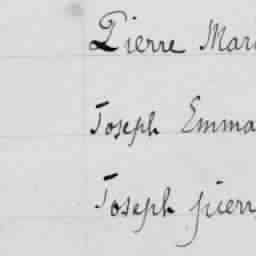 Pierre Mari
Joseph Emma
Joseph pierr